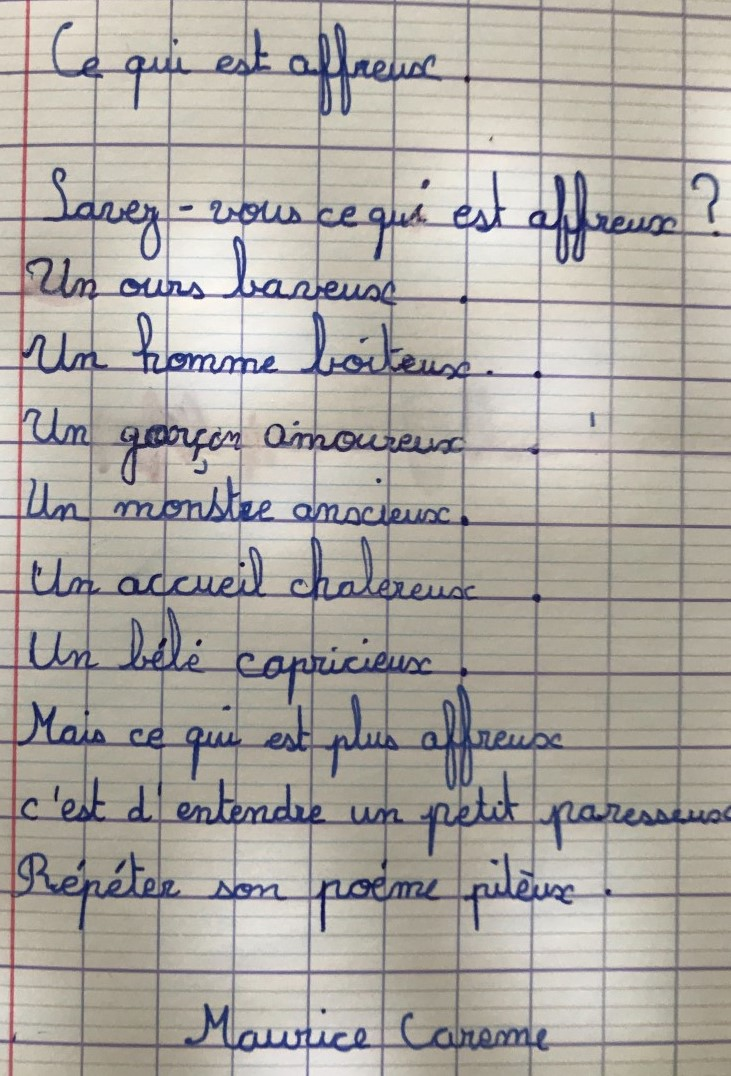 Ce qui est affreux.
Savez-vous ce qui est affreux ?
Un ours baveux.
Un homme boiteux.
Un garçon amoureux.
Un monstre anxieux.
Un accueil chalereux.
Un bébé capricieux.
Mais ce qui est plus affreux
c'est d'entendre un petit paresseux
Répéter son poéme pitèux.
Maurice Careme